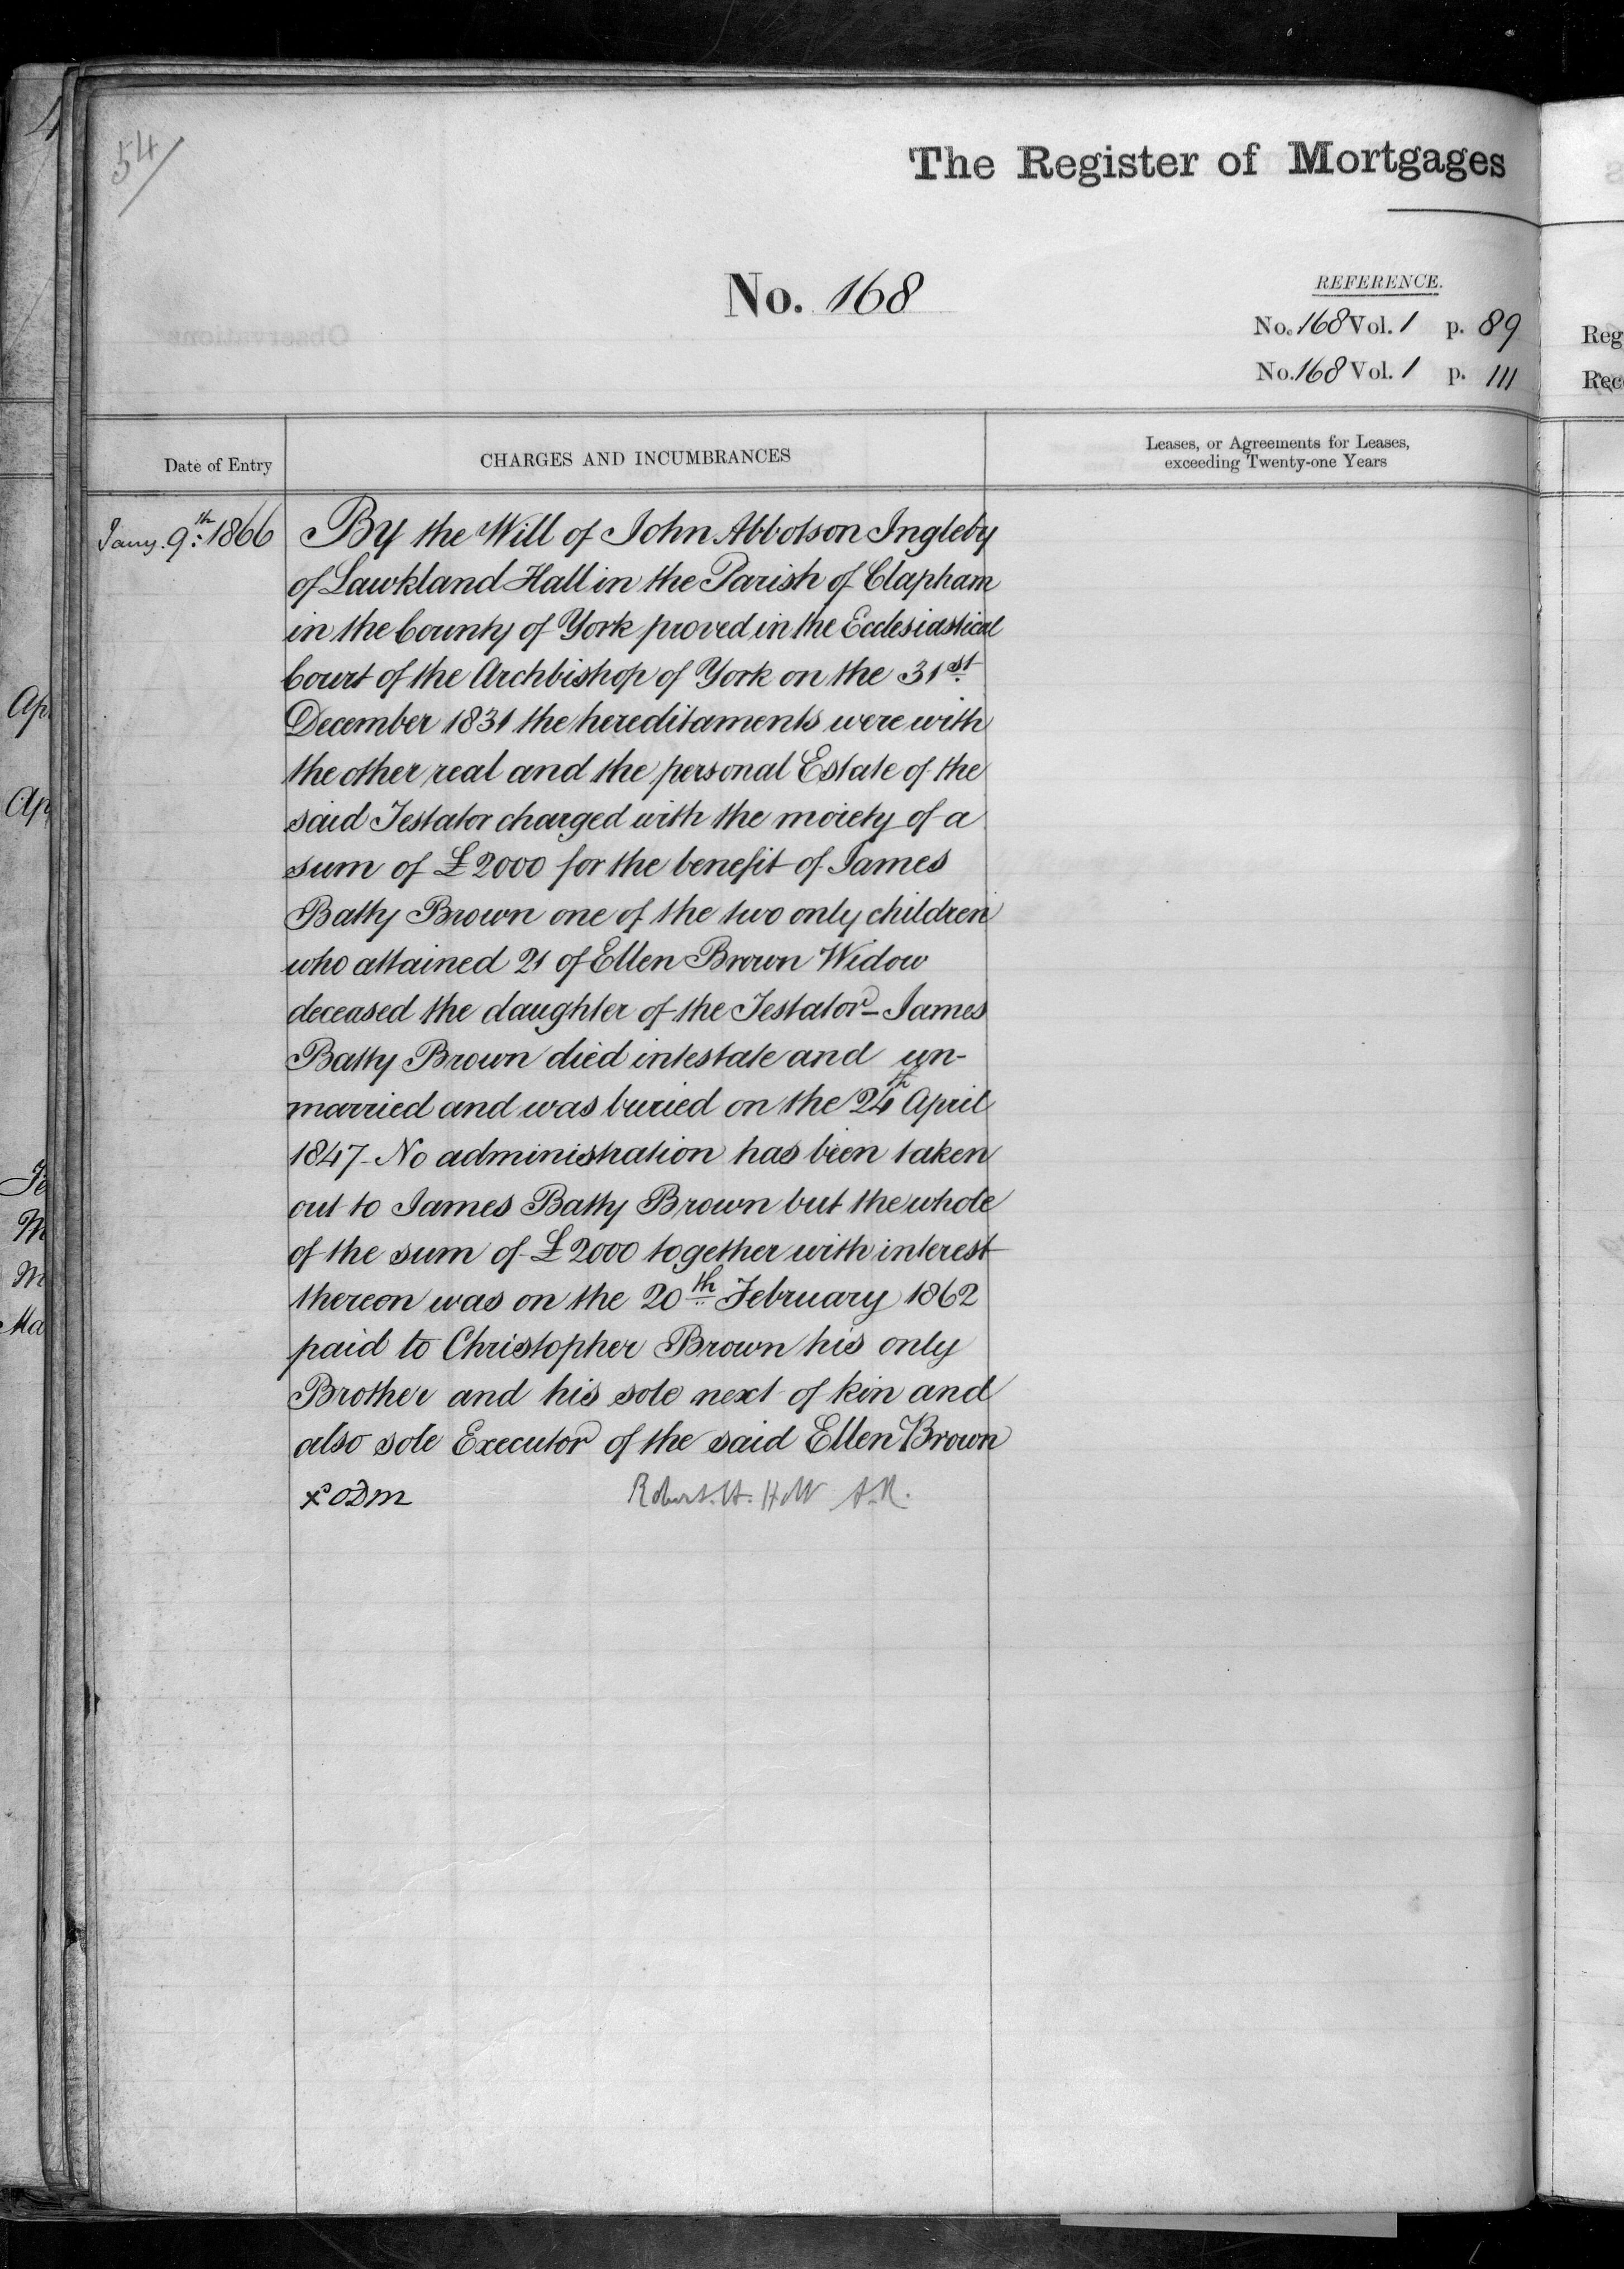 54
The Register of Mortgages
No. 168
REFERENCE.
No. 168 Vol. 1 p. 89
No. 168 Vol. 1 p. 111
Reg
Rec
Observations
Date of Entry
CHARGES AND INCUMBRANCES
Leases, or Agreements for Leases,
exceeding Twenty-one Years
Jany. 9th 1866
By the Will of John Abbotson Ingleby
of Lawkland Hall in the Parish of Clapham
in the County of York proved in the Ecclesiastical
Court of the Archbishop of York on the 31st
December 1831 the hereditaments were with
the other real and the personal Estate of the
said Testator charged with the moiety of a
sum of £2000 for the benefit of James
Batty Brown one of the two only children
who attained 21 of Ellen Brown Widow
deceased the daughter of the Testator - James
Batty Brown died intestate and un-
married and was buried on the 24th April
1847 - No administration has been taken
out to James Batty Brown but the whole
of the sum of £2000 together with interest
thereon was on the 20th February 1862
paid to Christopher Brown his only
Brother and his sole next of kin and
also sole Executor of the said Ellen Brown
Robert. H. Holt A.R.
Ap
Ap
Fe
M
M
Ma